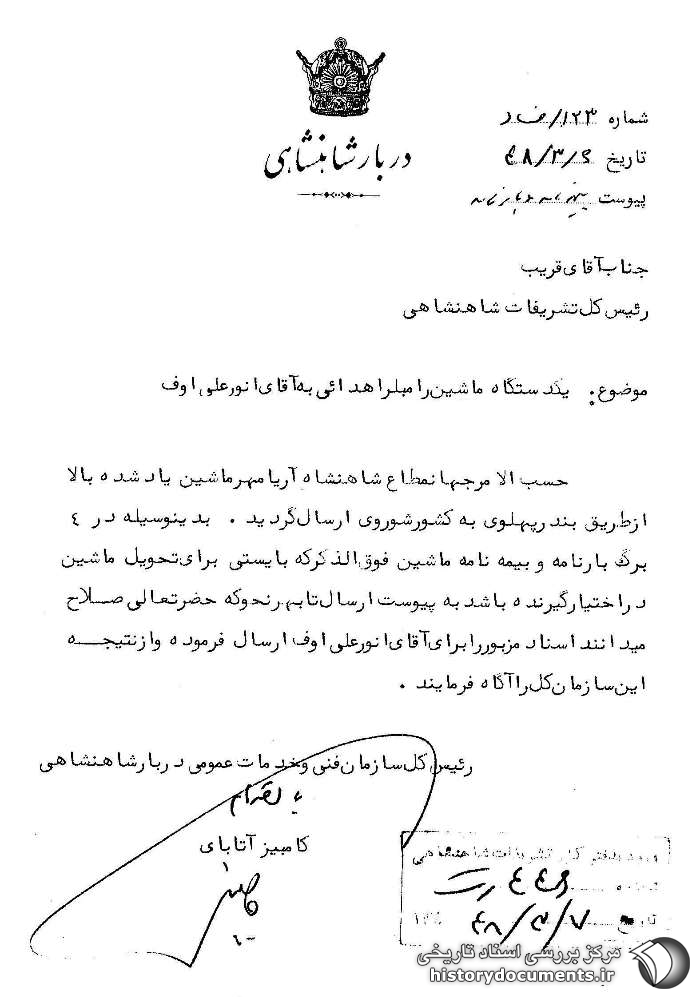 دربار شاهنشاهی
شماره ۱۲۳/ف د
تاریخ ۴۸/۳/۶
پیوست
جناب آقای قریب
رئیس کل تشریفات شاهنشاهی
موضوع: یکدستگاه ماشین رامبلر اهدائی به آقای انور علی اوف
حسب الامر جهانمطاع شاهنشاه آریامهر ماشین یاد شده بالا
از طریق بندر پهلوی به کشور شوروی ارسال گردید . بدینوسیله در ٤
برگ بارنامه و بیمه نامه ماشین فوق الذکر که بایستی برای تحویل ماشین
در اختیار گیرنده باشد به پیوست ارسال تا بهر نحو که حضرتعالی صلاح
میدانند اسناد مزبور را برای آقای انور علی اوف ارسال فرموده و از نتیجه
این سازمان کل را آگاه فرمایند .
رئیس کل سازمان فنی و خدمات عمومی دربار شاهنشاهی
کامبیز آتابای
ورود بدفتر کل تشریفات شاهنشاهی
شماره
تاریخ ۴۸/۳/۷
مرکز بررسی اسناد تاریخی
historydocuments.ir